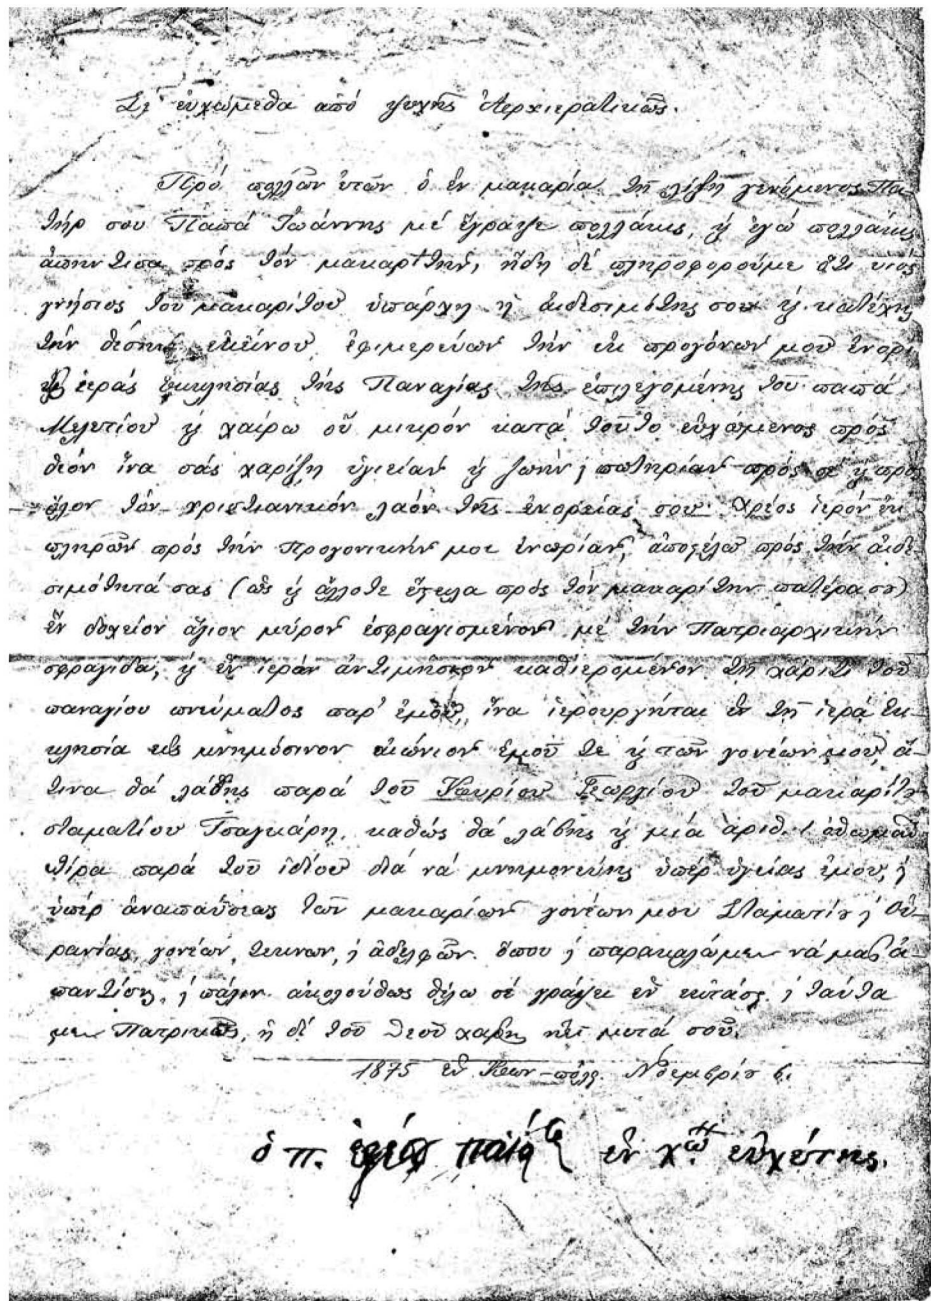 Σέ εὐχώμεθα από ψυχῆς Ἀρχιερατικῶς.
Πρό πολλῶν ἐτῶν ὁ ἐν μακαρία τῇ λίξη γενόμενος Πα-
τήρ σου Παπά Ἰωάννης μέ ἔγραψε πολλάκις, ἡ ἐγώ πολλάκις
ἀπήντισα πρός τόν μακαρίτην, ἤδη δέ πληροφορούμε ὅτι υιός
γνήσιος τοῦ μακαρίτου ὑπάρχη ἡ αἰδεσιμότης σου ἡ κατέχης
τήν θέσην εκείνου, ἐφιμερεύων τήν εκ προγόνων μου ἐνορί
ἱεράς ἐκκλησίας τῆς Παναγίας τῆς ἐπιλεγομένης τοῦ παπά
Μελετίου ἡ χαίρω οὔ μικρόν κατά τοῦτο εὐχώμενος πρός
θεόν ἵνα σάς χαρίζη ὑγιείαν ἡ ζωήν, σωτηρίαν πρός σέ ἡ προς
ὅλον τόν χριστιανικόν λαόν τῆς ενορείας σου. Χρέος ἱερόν ἐκ
πληρῶν πρός τήν προγονικήν μου ἐνωρίαν, ἀποστέλω πρός τήν αἰδε-
σιμότητά σας (ὡς ἡ ἄλλοτε ἔστειλα πρός τόν μακαρίτην πατέρα σου)
ἕν δοχείον ἅγιον μύρον ἐσφραγισμένον με τήν Πατριαρχικήν
σφραγίδα, ἡ ἕν ιερόν ἀντιμήσιον καθιερομένον τῇ χάριτι τοῦ
παναγίου πνεύματος παρ' ἐμοῦ, ἵνα ἱερουργήται ἐν τῇ ἱερά ἐκ-
κλησία εἰς μνημόσινον αἰώνιον ἐμοῦ τε ἡ τῶν γονέων μου, ἅ-
τινα θά λάβης παρά τοῦ Κυρίου Γεωργίου τοῦ μακαρίτου
σταματίου Τσαγκάρη, καθώς θά λάβης ἡ μία ἀριθ. 1 ὀθωμαν
λίρα παρά τοῦ ἰδίου διά νά μνημονεύης ὑπέρ ὑγείας ἐμοῦ, ἡ
ὑπέρ ἀναπαύσεως τῶν μακαρίων γονέων μου Σταματίου ἡ Οὐ-
ρανίας, γονέων, τέκνων, ἡ ἀδελφῶν. ὅπου ἡ παρακαλώμεν νά μας ἀ-
παντίση, ἡ πάλιν ακολούθως θέλω σέ γράψει ἐν εκτάσει ἡ ταύτα
μεν Πατρικῶς, ἡ δέ τοῦ Θεοῦ χαρις μετά σοῦ.
1875 ἐν Κων-πόλει Νοεμβρίου 6.
ὁ π. ἐφέσου παΐσιος ἐν χῷ εὐχέτης.